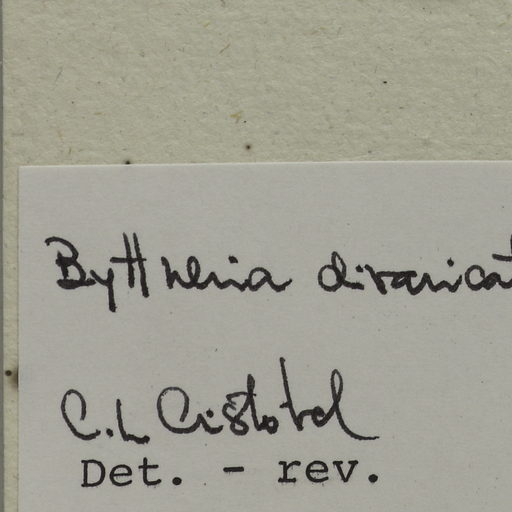 Byttneria divaricat
C.L. Cristobal
Det. - rev.